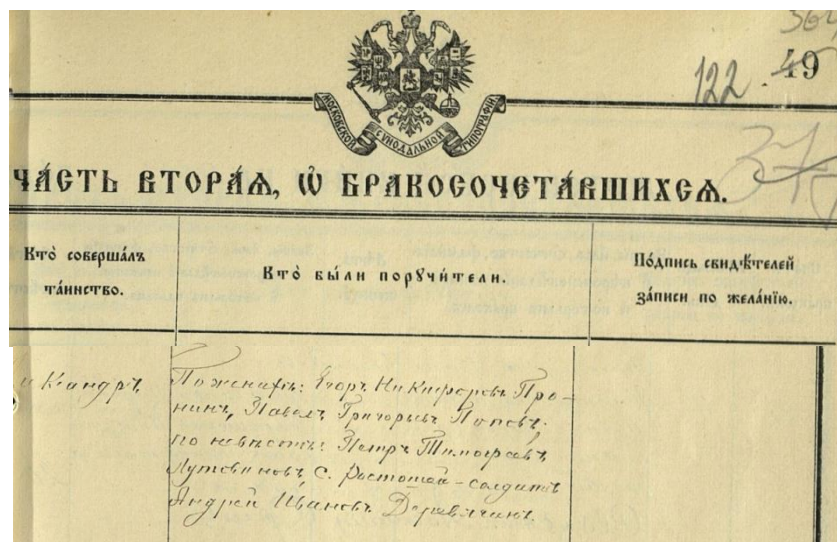 122 49
МОСКОВСКОЙ СѴНОДАЛЬНОЙ ТИПОГРАФІИ
ЧА́СТЬ ВТОРА́Я, Ѡ҆ БРАКОСОЧЕТА́ВШИХСЯ.
Кто̀ соверша́лъ
та́инство.
Кто̀ бы́ли порꙋчи́тели.
По́дпись свидѣ́телей
за́писи по жела́нію.
По женихѣ: Егоръ Никифоровъ Про-
нинъ, Павелъ Григорьевъ Поповъ;
по невѣстѣ: Петръ Тимофеевъ
Лутовиновъ, с. Ростоши - солдатъ
Андрей Ивановъ Деревягинъ